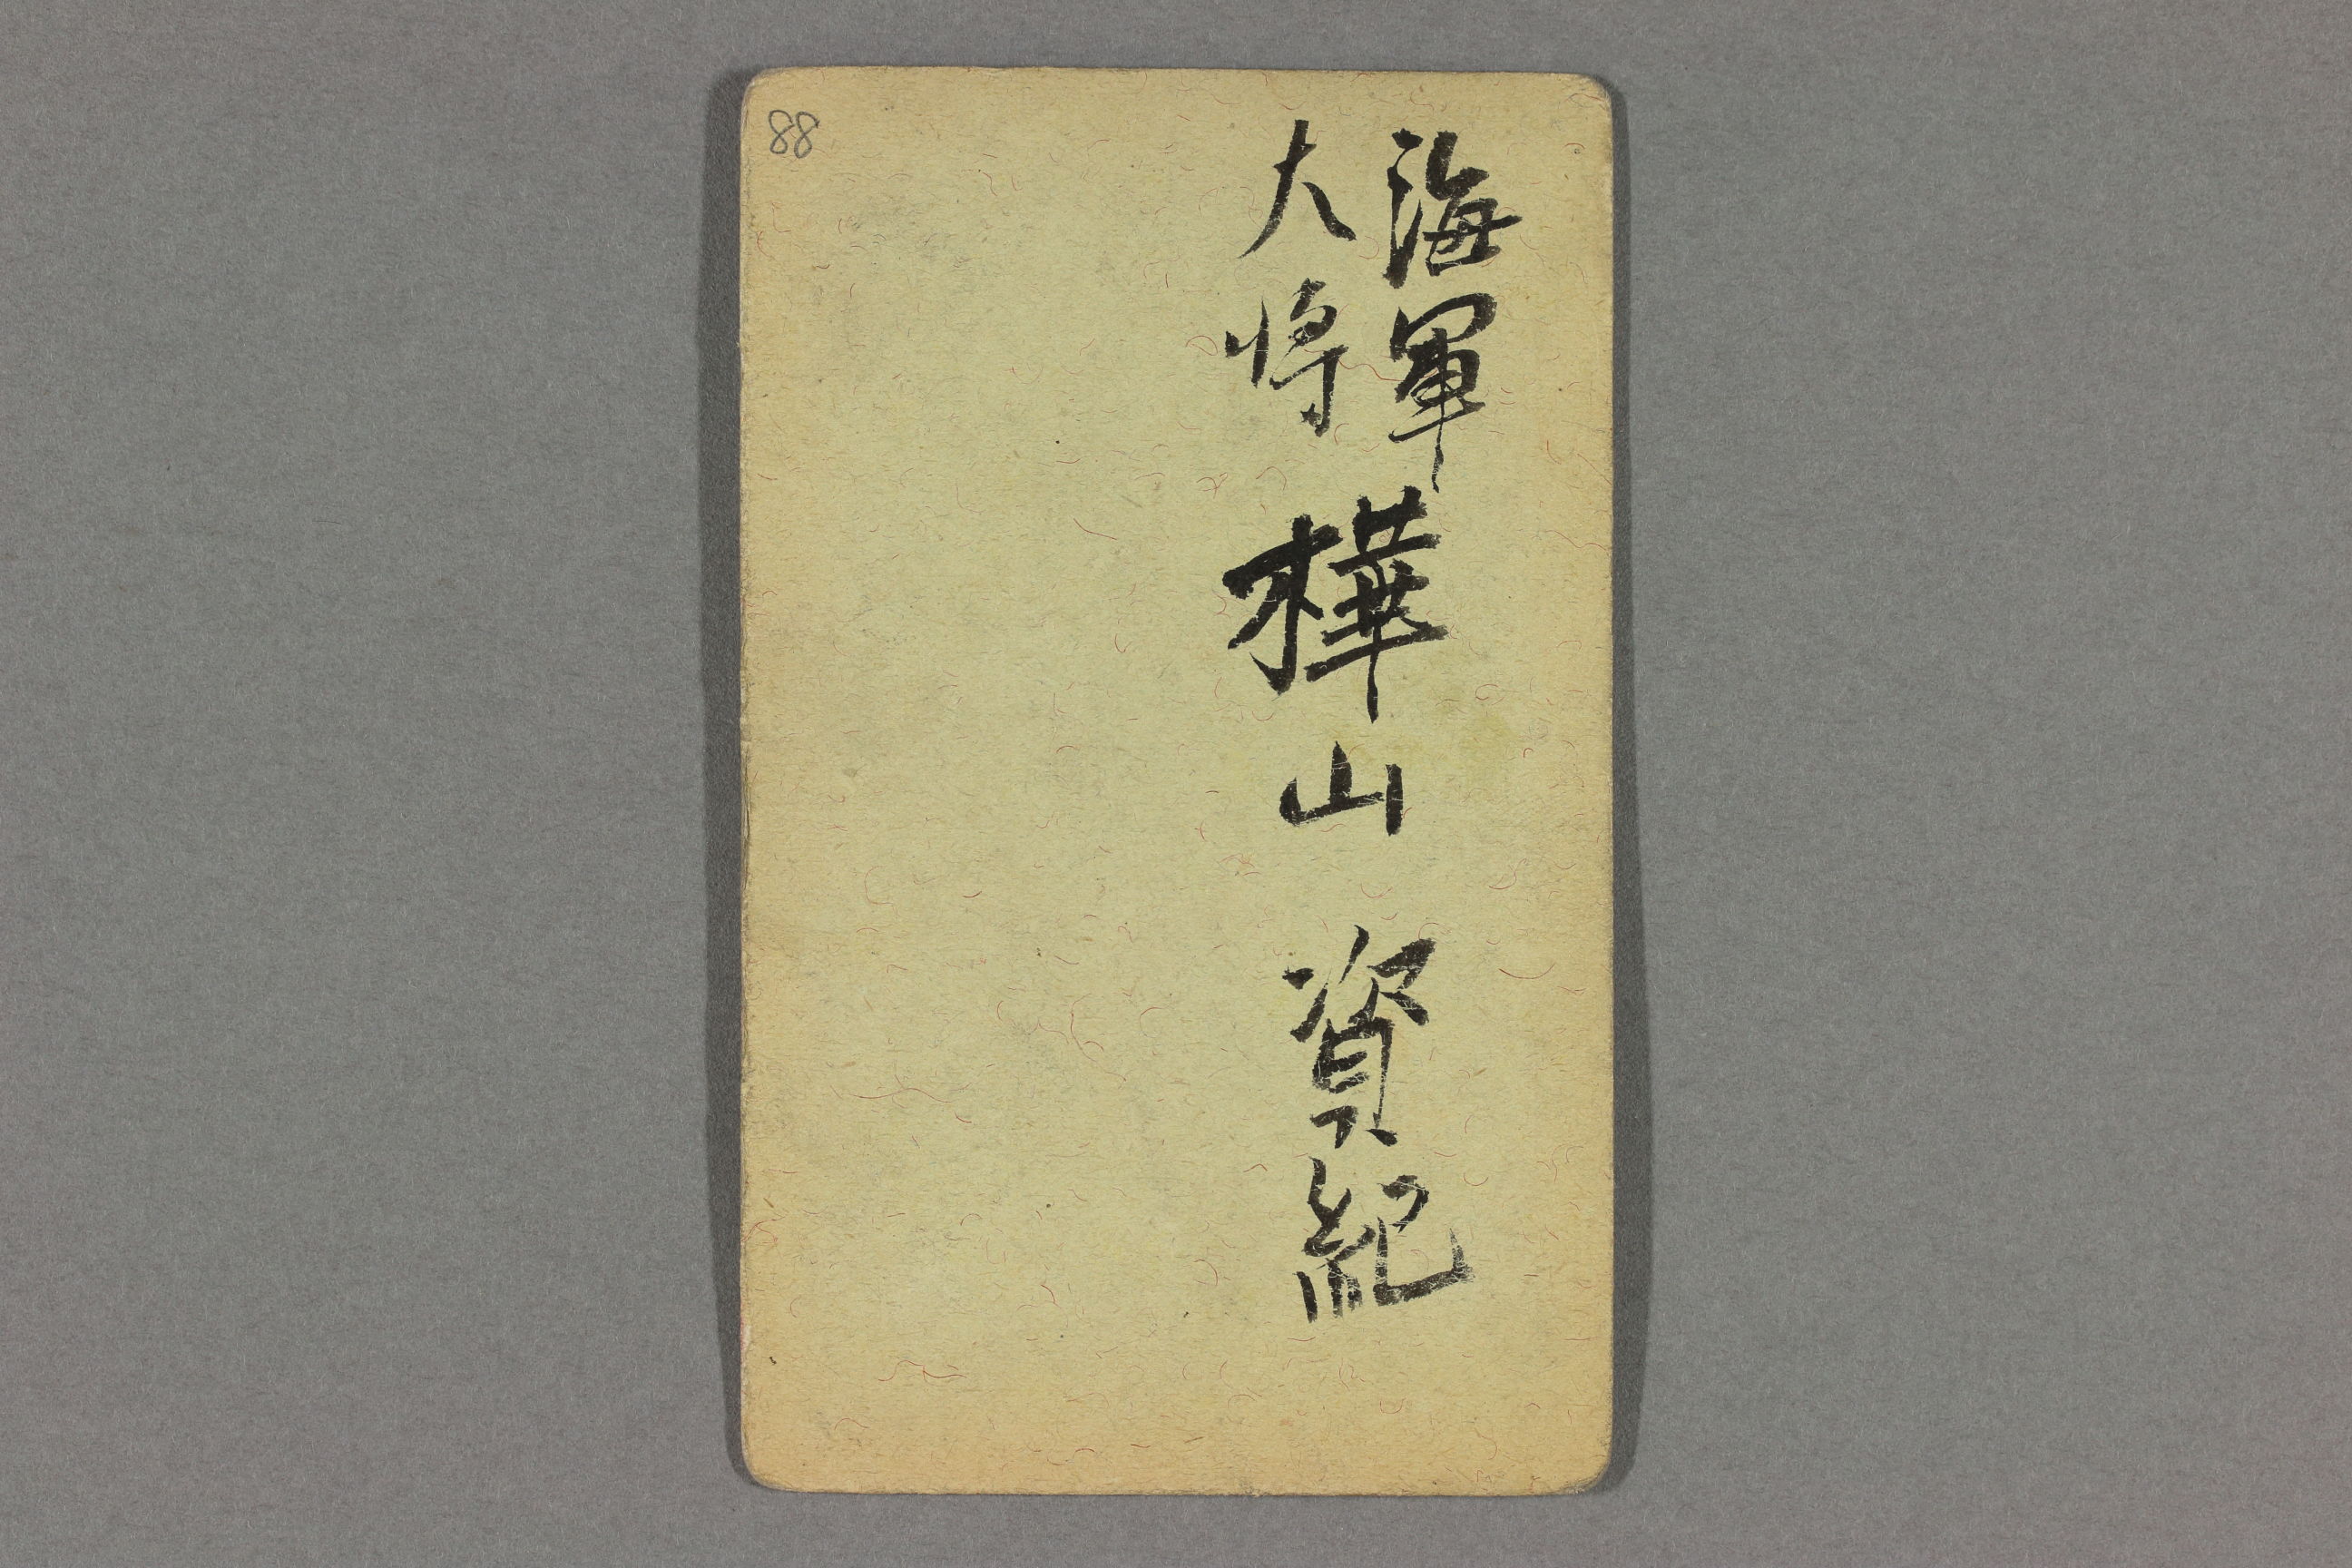 海軍
大将
樺山資紀
88